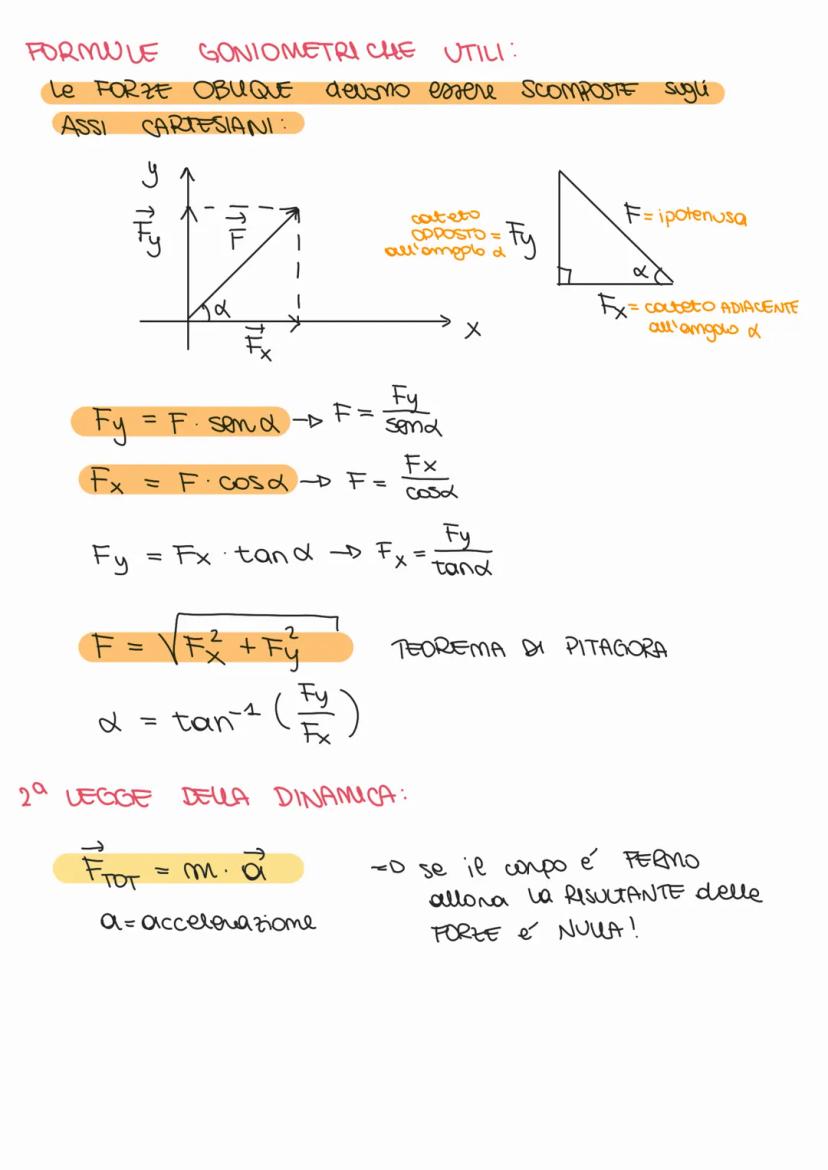 FORMULE GONIOMETRICHE UTILI:
Le FORZE OBLIQUE devono essere SCOMPOSTE sugli
ASSI CARTESIANI:
y
F⃗y
F⃗
α
F⃗x
x
cateto
OPPOSTO = Fy
all'angolo α
F = ipotenusa
α
Fx = cateto ADIACENTE
all'angolo α
Fy = F · sen α → F = Fy/senα
Fx = F · cos α → F = Fx/cosα
Fy = Fx · tan α → Fx = Fy/tanα
F = √(Fx² + Fy²) TEOREMA DI PITAGORA
α = tan⁻¹ (Fy/Fx)
2ª LEGGE DELLA DINAMICA:
F⃗TOT = m · a⃗
a = accelerazione
=D se il corpo é FERMO
allora la RISULTANTE delle
FORZE é NULLA!